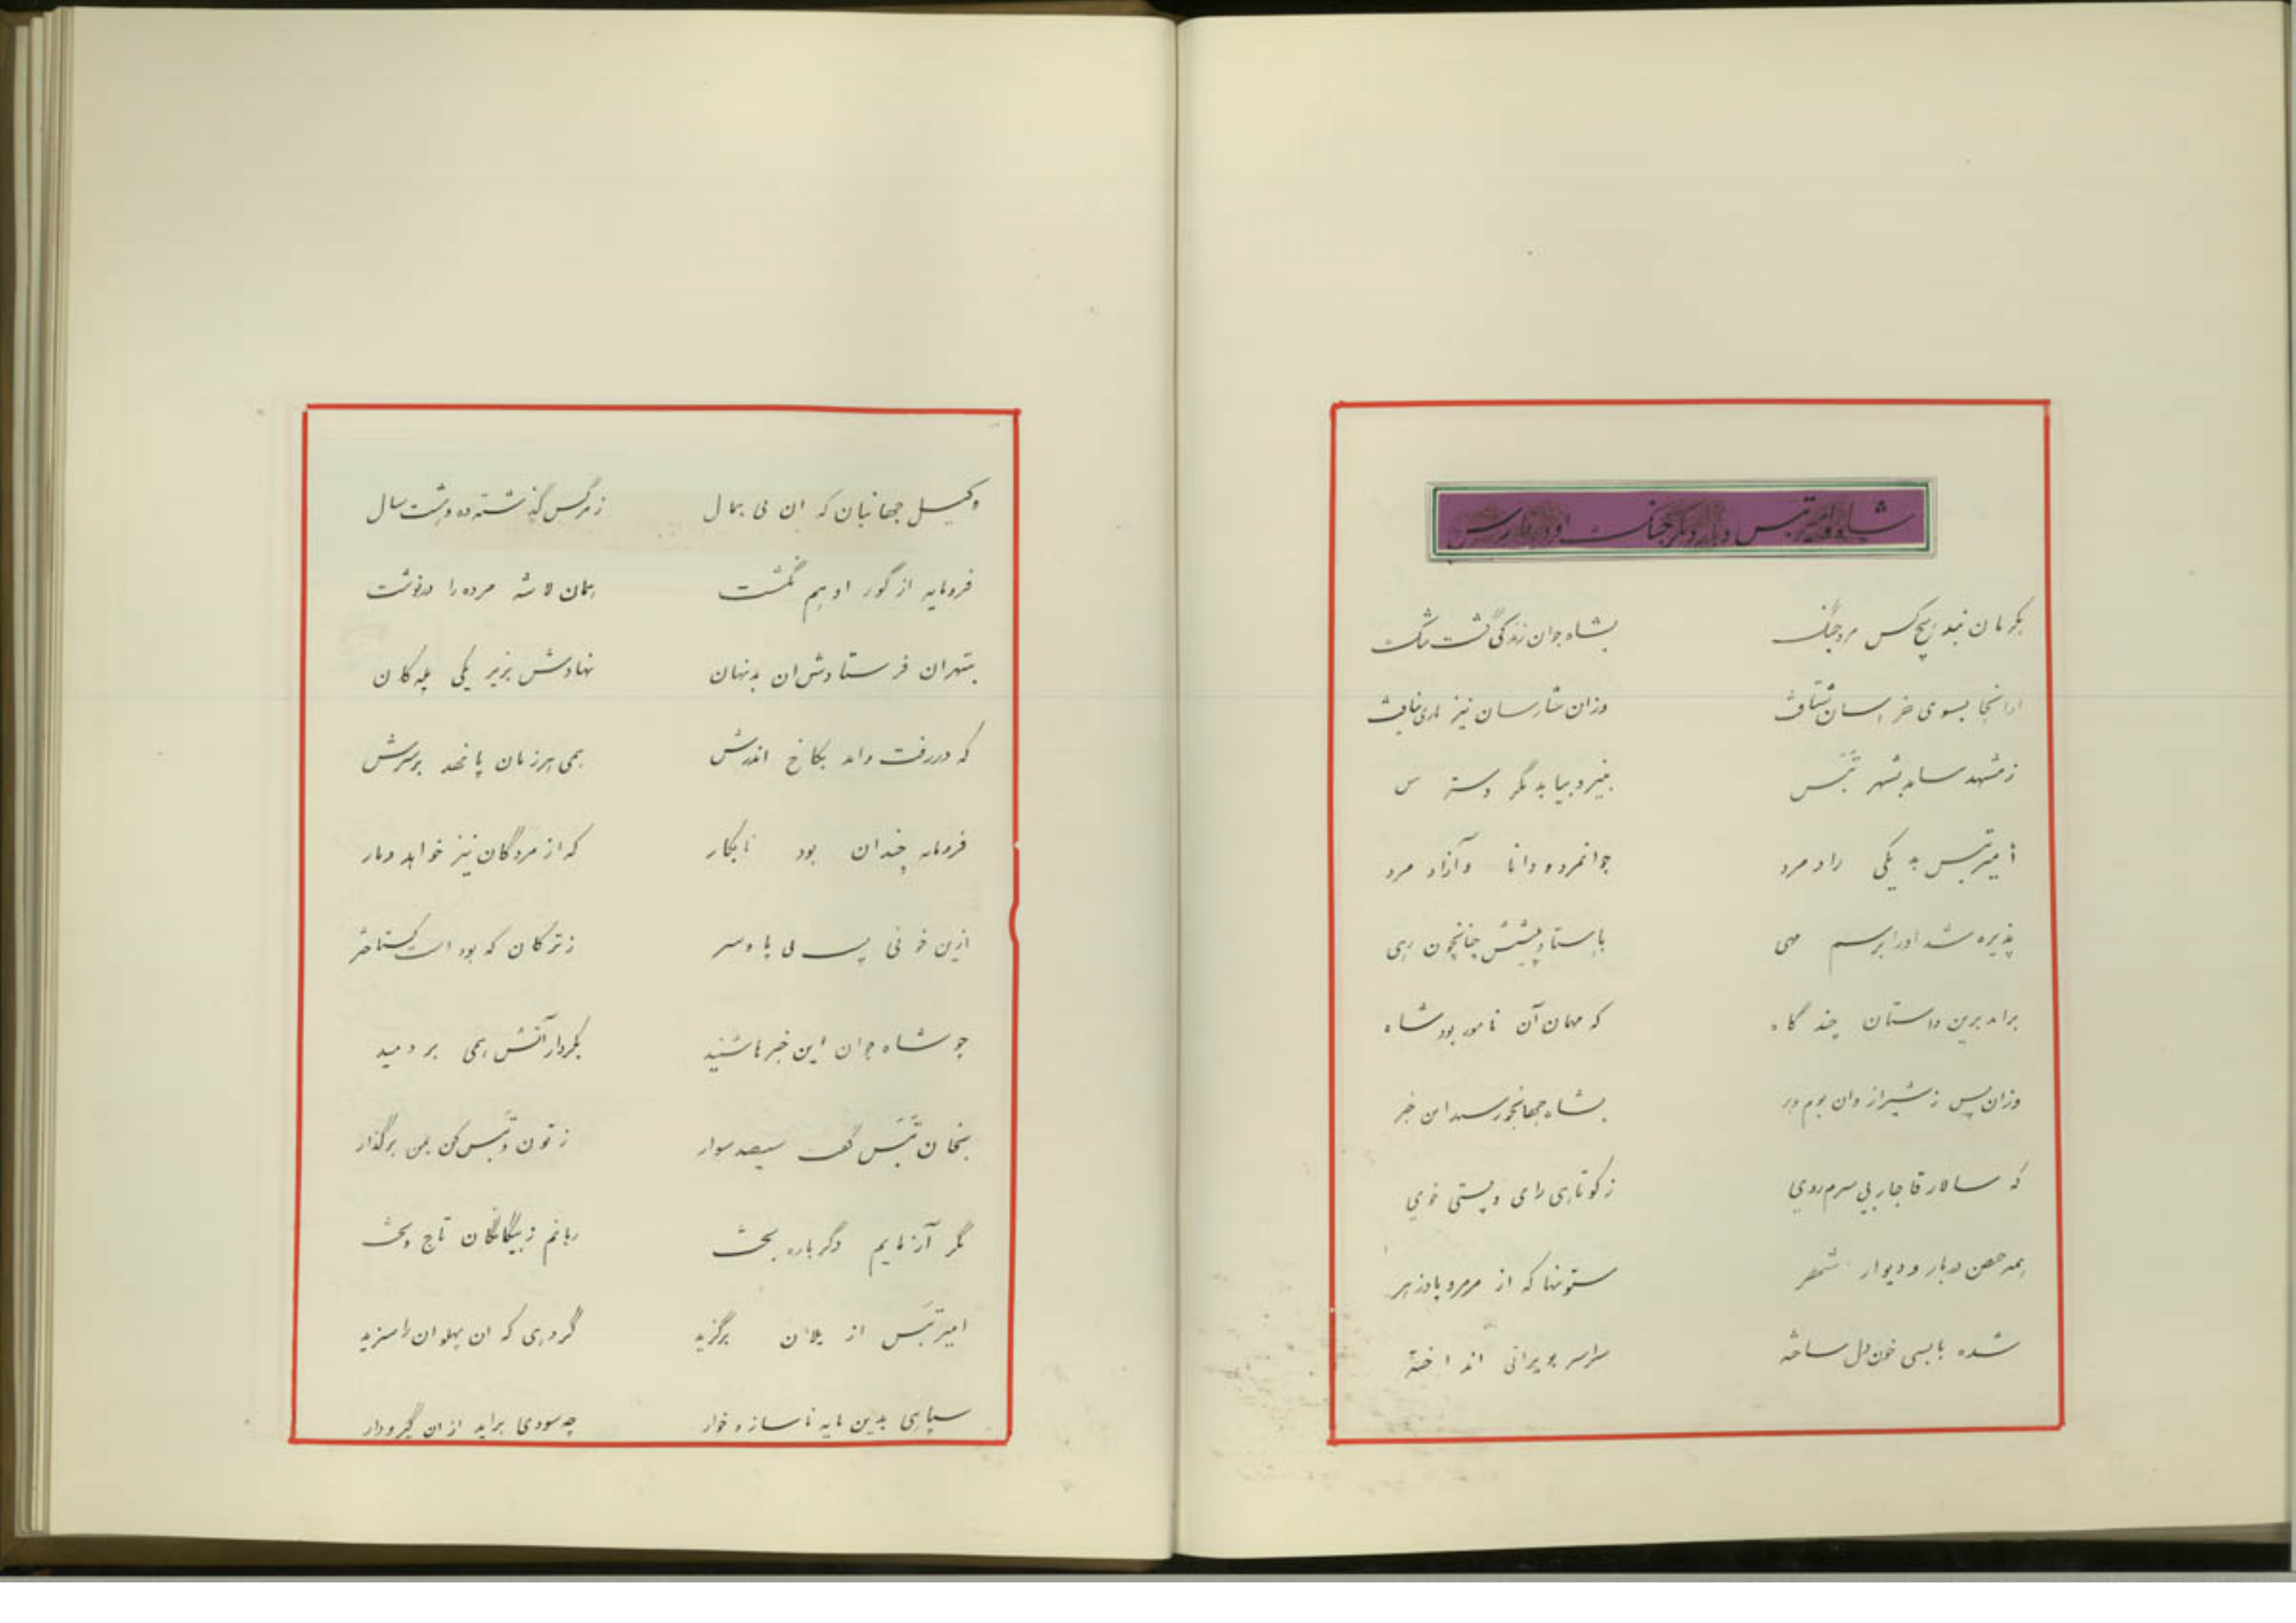 شاه و امیر تبس و بار دیگر جنگ او در پارس
بکرمان نبد هیچکس مرد جنگ بشاه جوان زندگی گشت تنگ
ازانجا بسوی خراسان شتافت وزان شارسان نیز یاری نیافت
ز مشهد بشهر تبس
امیر تبس بد یکی راد مرد جوانمرد و دانا و آزاد مرد
پذیره شد او را برسم مهی باستاد پیشش چنانچون رهی
برامد برین داستان چند گاه که مهمان آن نامور بود شاه
وزان پس ز شیراز وان بوم وبر بشاه جهانجو رسید این خبر
که سالار قاجار بی سرم روی ز کوتاهی رای و پستی خوی
همه حصن دربار و دیوار ستونها که از مرمر و پادزهر
شده با بسی خون دل ساخته سراسر بویرانی انداخته
وکیل جهانبان که ان بی همال ز مرگش گذشته ده و هشت سال
فرومایه از گور او هم نگشت همان لاشه مرده را درنوشت
بتهران فرستادش ان بدنهان نهادش بزیر یکی پله کان
که در رفت وامد بکاخ اندرش همی هر زمان پا نهد بر سرش
فرومایه چندان بود نابکار که از مردگان نیز خواهد دمار
ازین خونی پست بی پا و سر ز ترکان که بود است گستاختر
چو شاه جوان این خبرها شنید بکردار آتش همی بر دمید
بخان تبس گفت سیصد سوار ز تون و تبس کن بمن برگذار
مگر آزمایم دگر باره بخت رهانم ز بیگانگان تاج و تخت
امیر تبس از یلان برگزید گروهی که ان پهلوان را سزید
سپاهی بدین مایه ناساز و خوار چه سودی براید ازان گیرودار